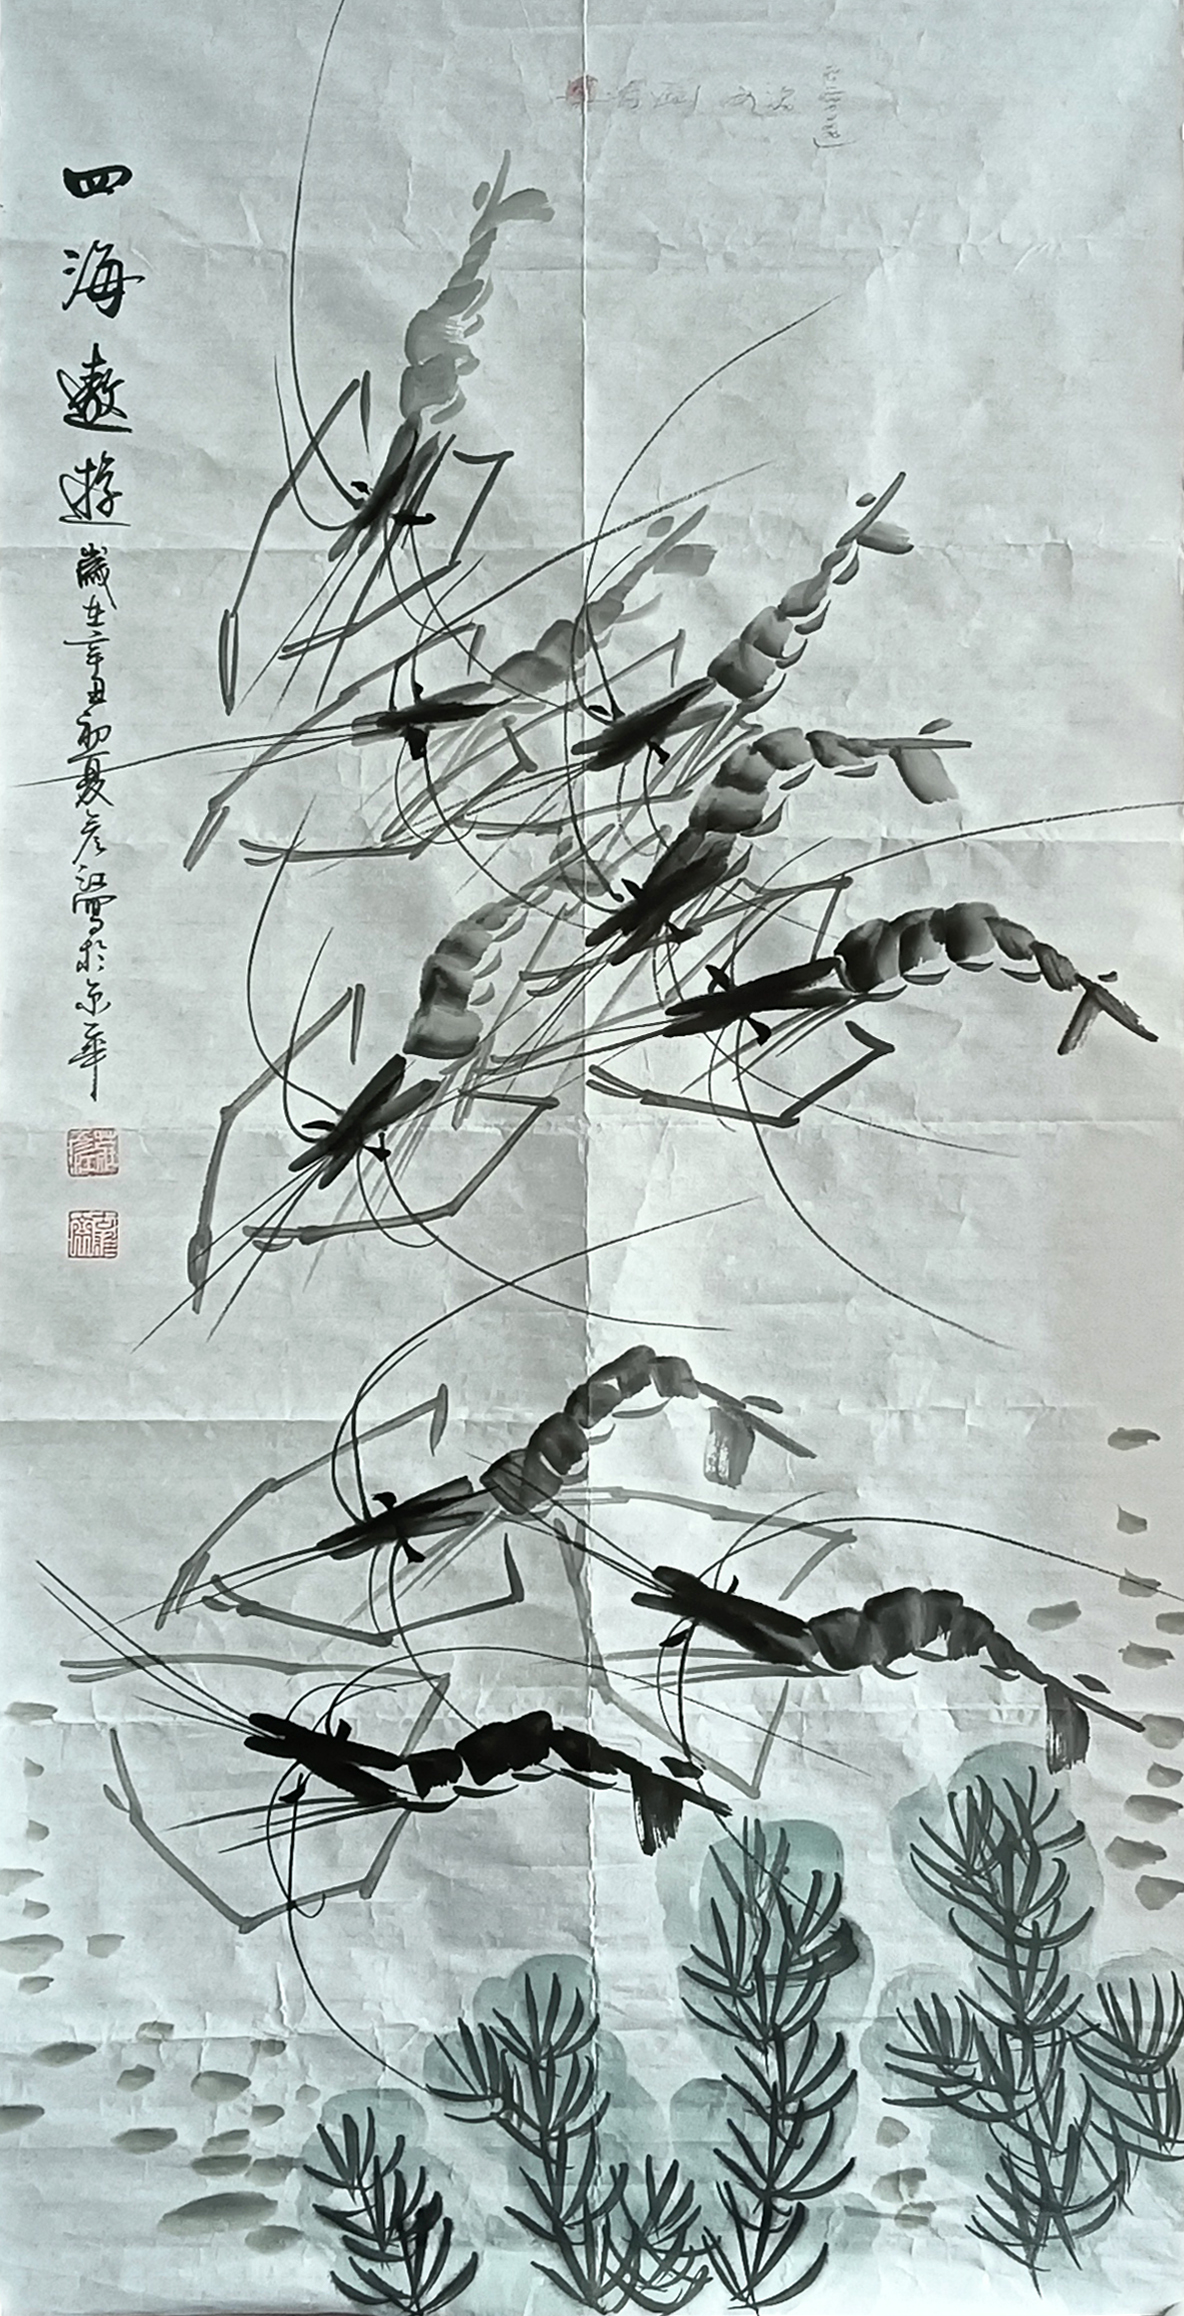 四海遨遊
歲在辛丑初夏彦江寫於京華